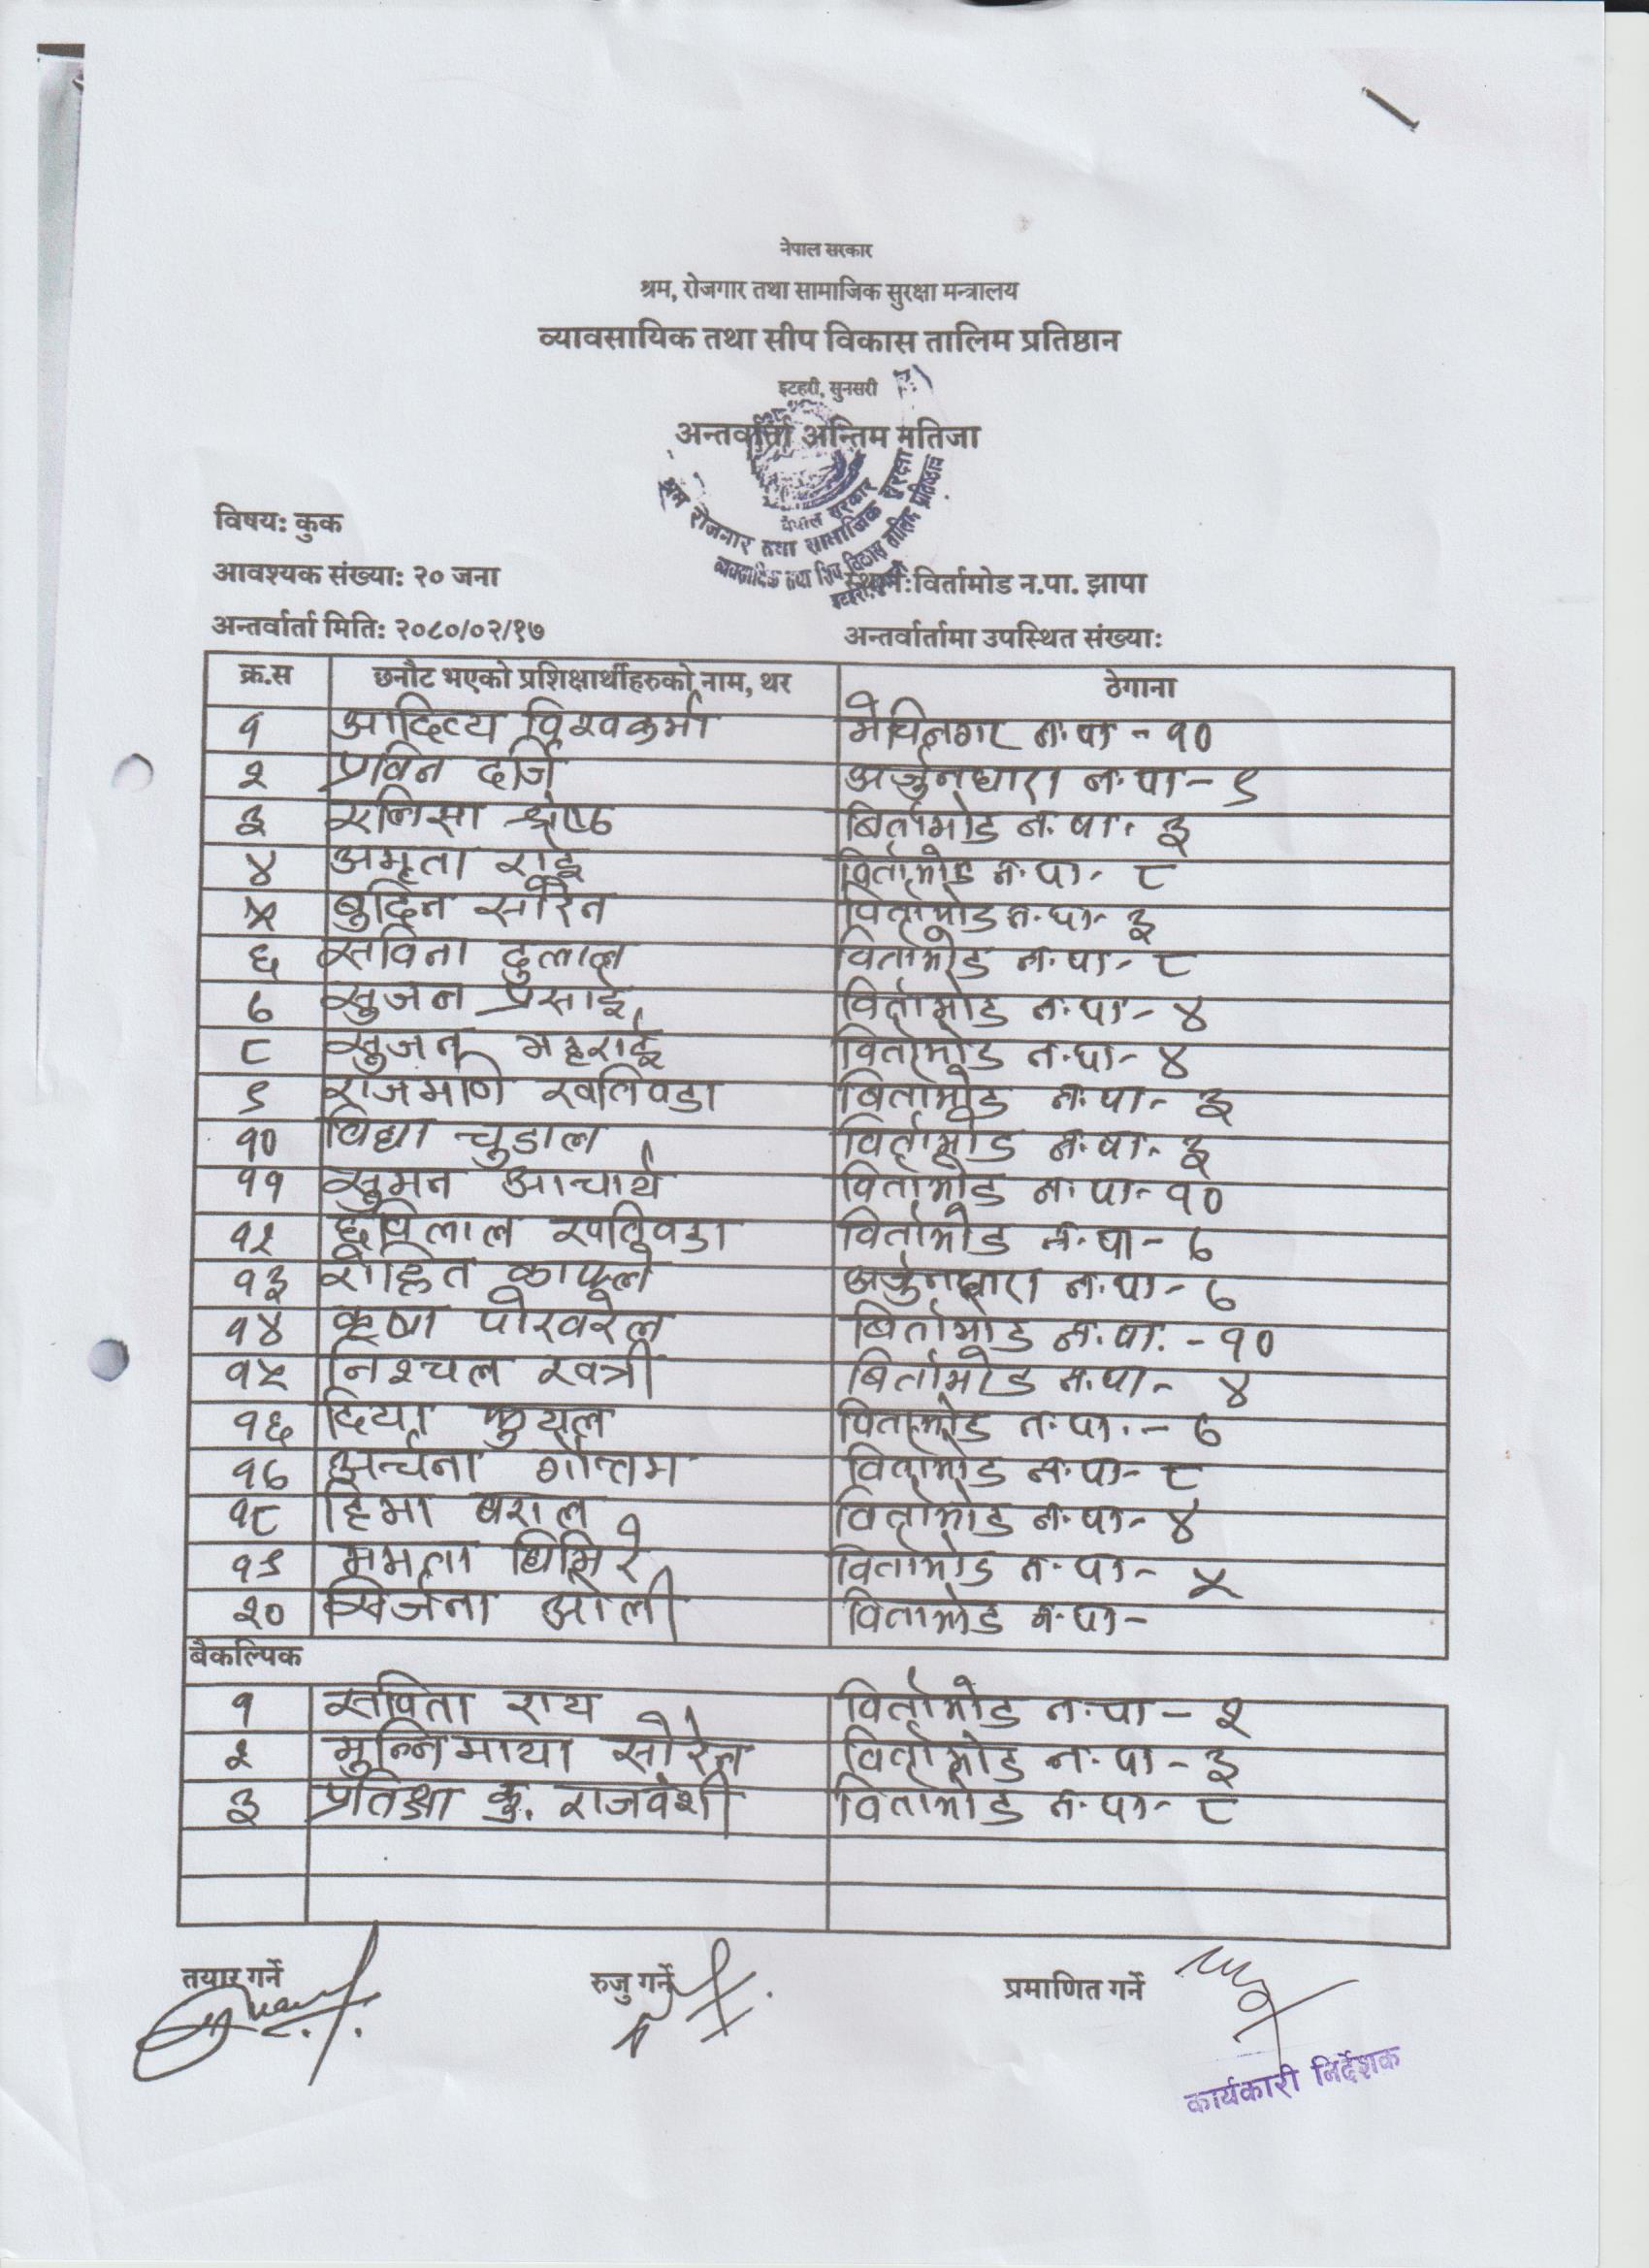 नेपाल सरकार
श्रम, रोजगार तथा सामाजिक सुरक्षा मन्त्रालय
व्यावसायिक तथा सीप विकास तालिम प्रतिष्ठान
इटहरी, सुनसरी
अन्तर्वार्ता अन्तिम नतिजा
नेपाल सरकार
श्रम रोजगार तथा सामाजिक सुरक्षा
विषय: कुक
आवश्यक संख्या: २० जना स्थान:विर्तामोड न.पा. झापा
अन्तर्वार्ता मिति: २०८०/०२/१७ अन्तर्वार्तामा उपस्थित संख्या:
क्र.स छनौट भएको प्रशिक्षार्थीहरुको नाम, थर ठेगाना
१ आदित्य विश्वकर्मा मेचिनगर न.पा - १०
२ प्रविन दर्जि अर्जुनधारा न.पा - ९
३ एलिसा श्रेष्ठ बिर्तामोड न.पा. ३
४ अमृता राई विर्तामोड न.पा - ८
५ बुदिन सोरेन विर्तामोड न.पा - ३
६ सविना दुलाल विर्तामोड न.पा - ८
७ सुजन प्रसाई विर्तामोड न.पा - ४
८ सुजन भट्टराई विर्तामोड न.पा - ४
९ राजमणि खतिवडा बिर्तामोड न.पा - ३
१० विद्या चुडाल विर्तामोड न.पा - ३
११ सुमन आचार्य विर्तामोड न.पा - १०
१२ छविलाल खतिवडा विर्तामोड न.पा - ७
१३ रोहित काफ्ले अर्जुनधारा न.पा - ७
१४ कृष्ण पोखरेल बिर्तामोड न.पा. - १०
१५ निश्चल खत्री बिर्तामोड न.पा - ४
१६ दिया फुयल विर्तामोड न.पा. - ७
१७ अर्चना गौत्तम विर्तामोड न.पा - ८
१८ हिमा बराल विर्तामोड न.पा - ४
१९ ममता घिमिरे विर्तामोड न.पा - ५
२० सिर्जना ओली विर्तामोड न.पा -
बैकल्पिक
१ सविता राय विर्तामोड न.पा - २
२ मुन्निमाया सोरेन विर्तामोड न.पा - ३
३ प्रतिक्षा कु. राजवंशी विर्तामोड न.पा - ८
तयार गर्ने रुजु गर्ने प्रमाणित गर्ने
कार्यकारी निर्देशक